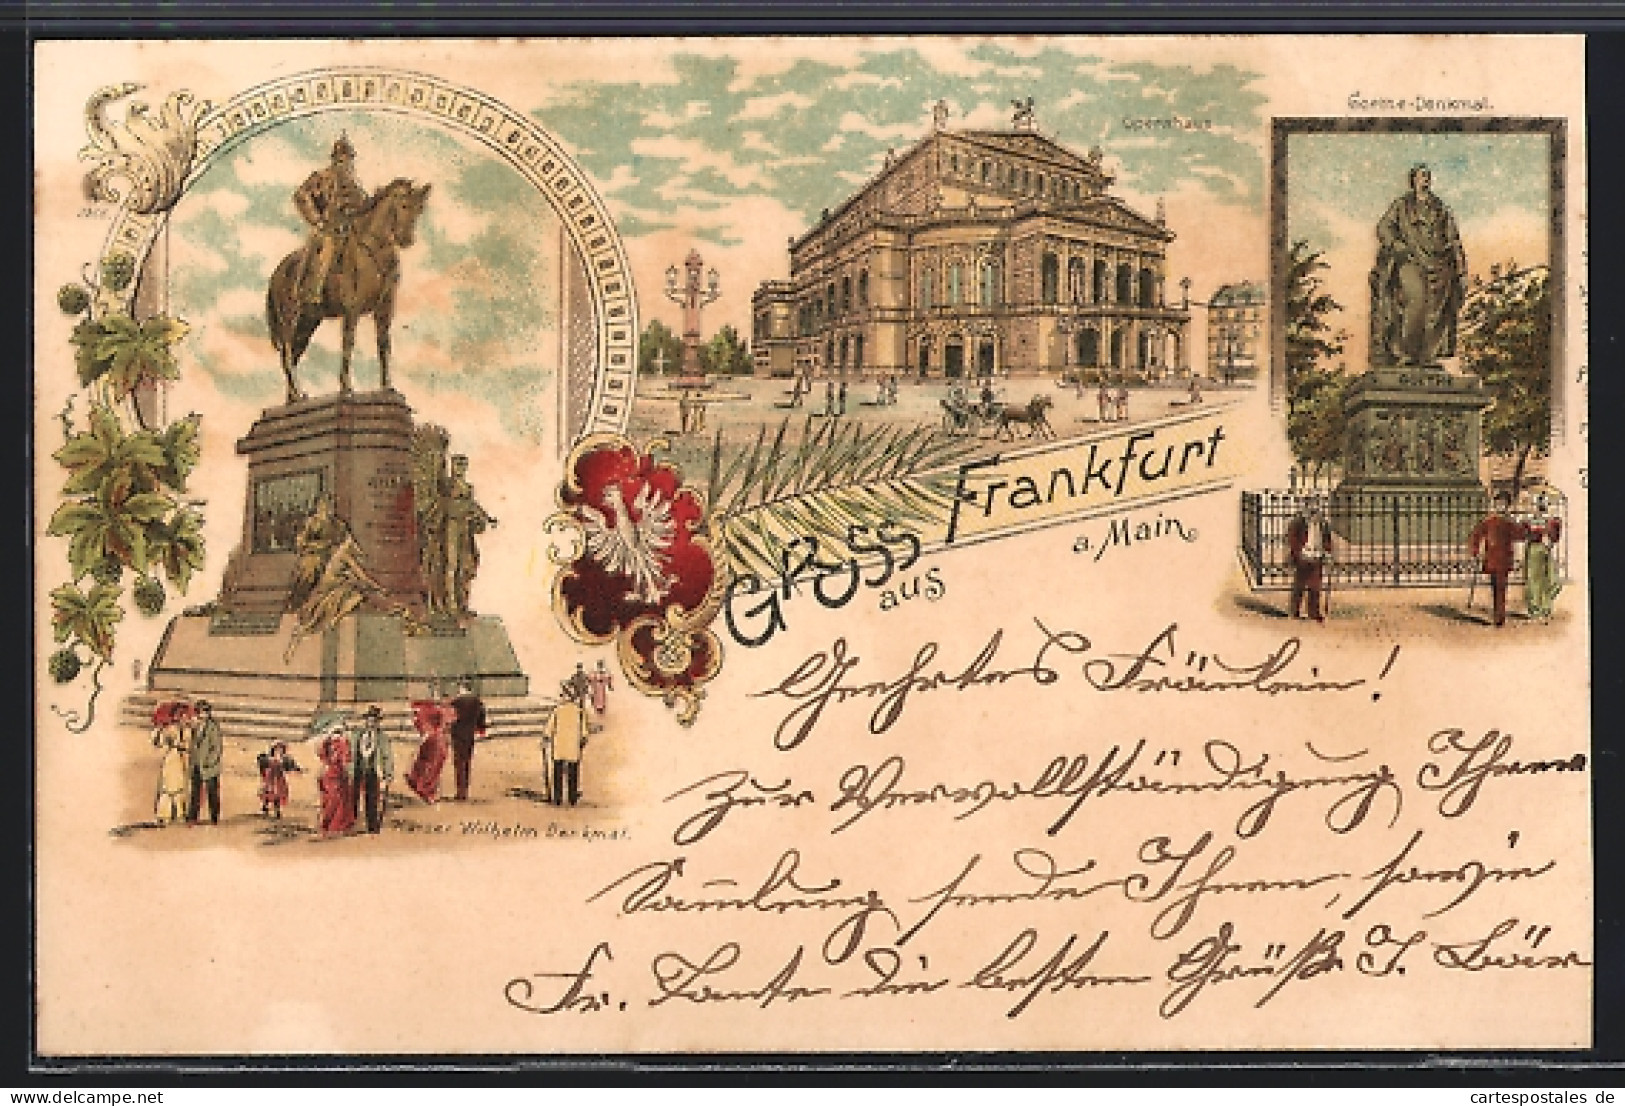 Opernhaus
Goethe-Denkmal.
GOETHE
Gruss
aus
Frankfurt
a. Main
Kaiser Wilhelm Denkmal.
Geehrtes Fräulein!
Zur Vervollständigung Ihrer
Sam̄lung sende Ihnen, sowie
Fr. Tante die besten Grüße J. Bär
www.cartespostales de